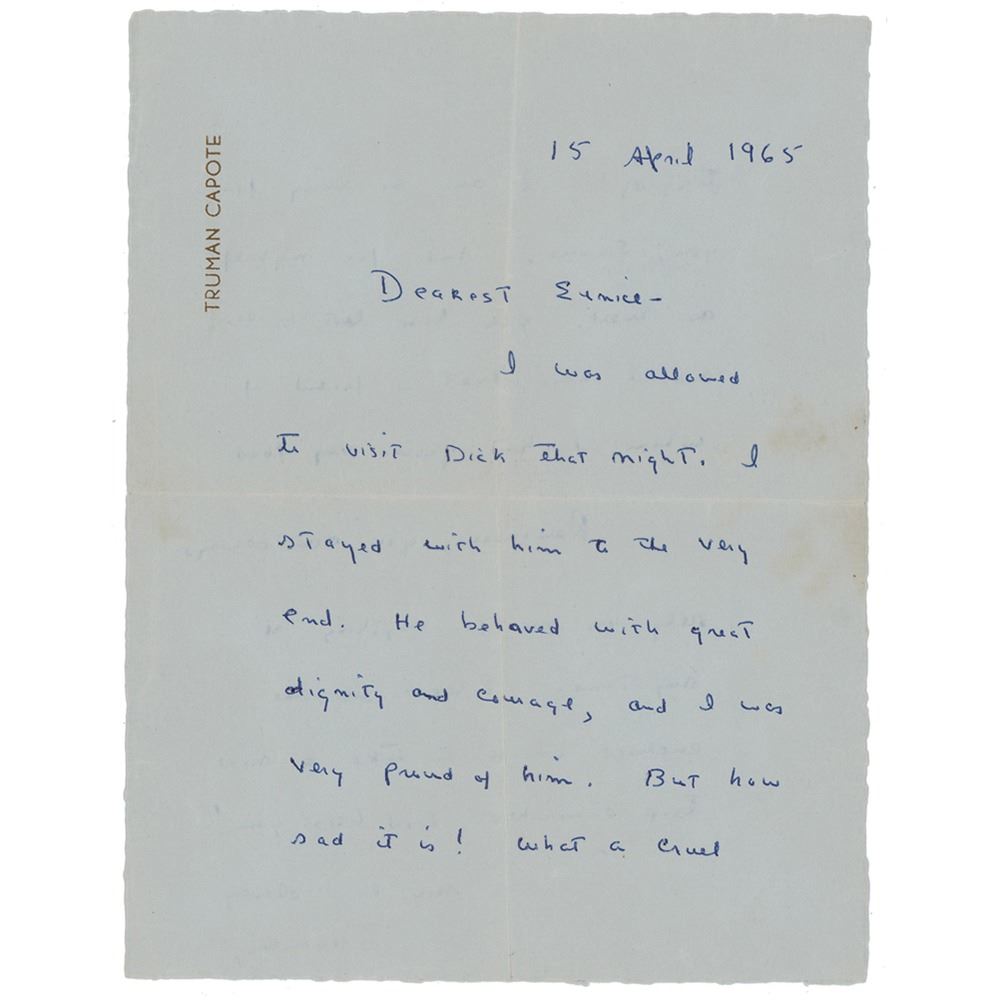 TRUMAN CAPOTE
15 April 1965
Dearest Eunice-
I was allowed
to visit Dick that night. I
stayed with him to the very
end. He behaved with great
dignity and courage, and I was
very proud of him. But how
sad it is! What a cruel